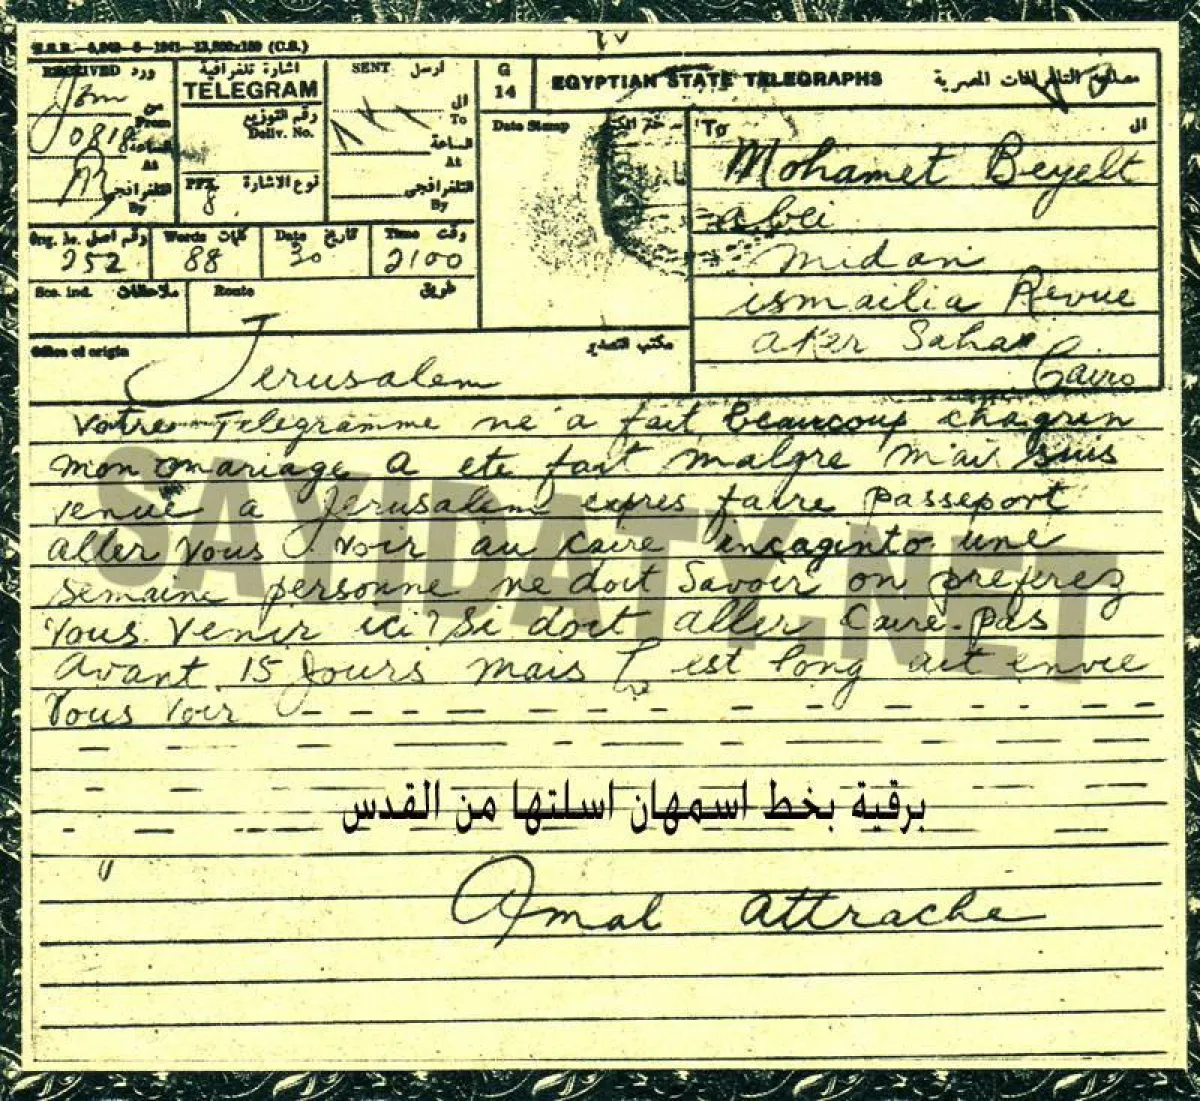 E.S.R. 5,040-6-1941-13,500x150 (C.S.)
RECEIVED ورد
من
From
Jem
0818
الساعة
At
التلغرافجي
By
اشارة تلغرافية
TELEGRAM
رقم التوزيع
Deliv. No.
نوع الاشارة
PFX
8
SENT ارسل
ال
To
الساعة
At
التلغرافجي
By
G
14
EGYPTIAN STATE TELEGRAPHS
مصلحة التلغرافات المصرية
Date Stamp ختم
To ال
Mohamet Beyelt
abei
midan
ismailia Revue
aker Saha
Cairo
Org. No. رقم اصل
252
Words كلمات
88
Date تاريخ
30
Time وقت
2100
Sce. ind. ملاحظات
Route طريق
Office of origin
مكتب التصدير
Jerusalem
Votre Telegramme ne a fait beaucoup chagrin
mon mariage a ete fait malgre mai suis
venue a Jerusalem expres faire passeport
aller vous voir au caire incaginto une
semaine personne ne doit savoir on preferez
vous venir ici? Si doit aller Caire pas
avant 15 jours mais est long ait envie
vous voir
برقية بخط اسمهان اسلتها من القدس
Amal attrache
SAYIDATY.NET